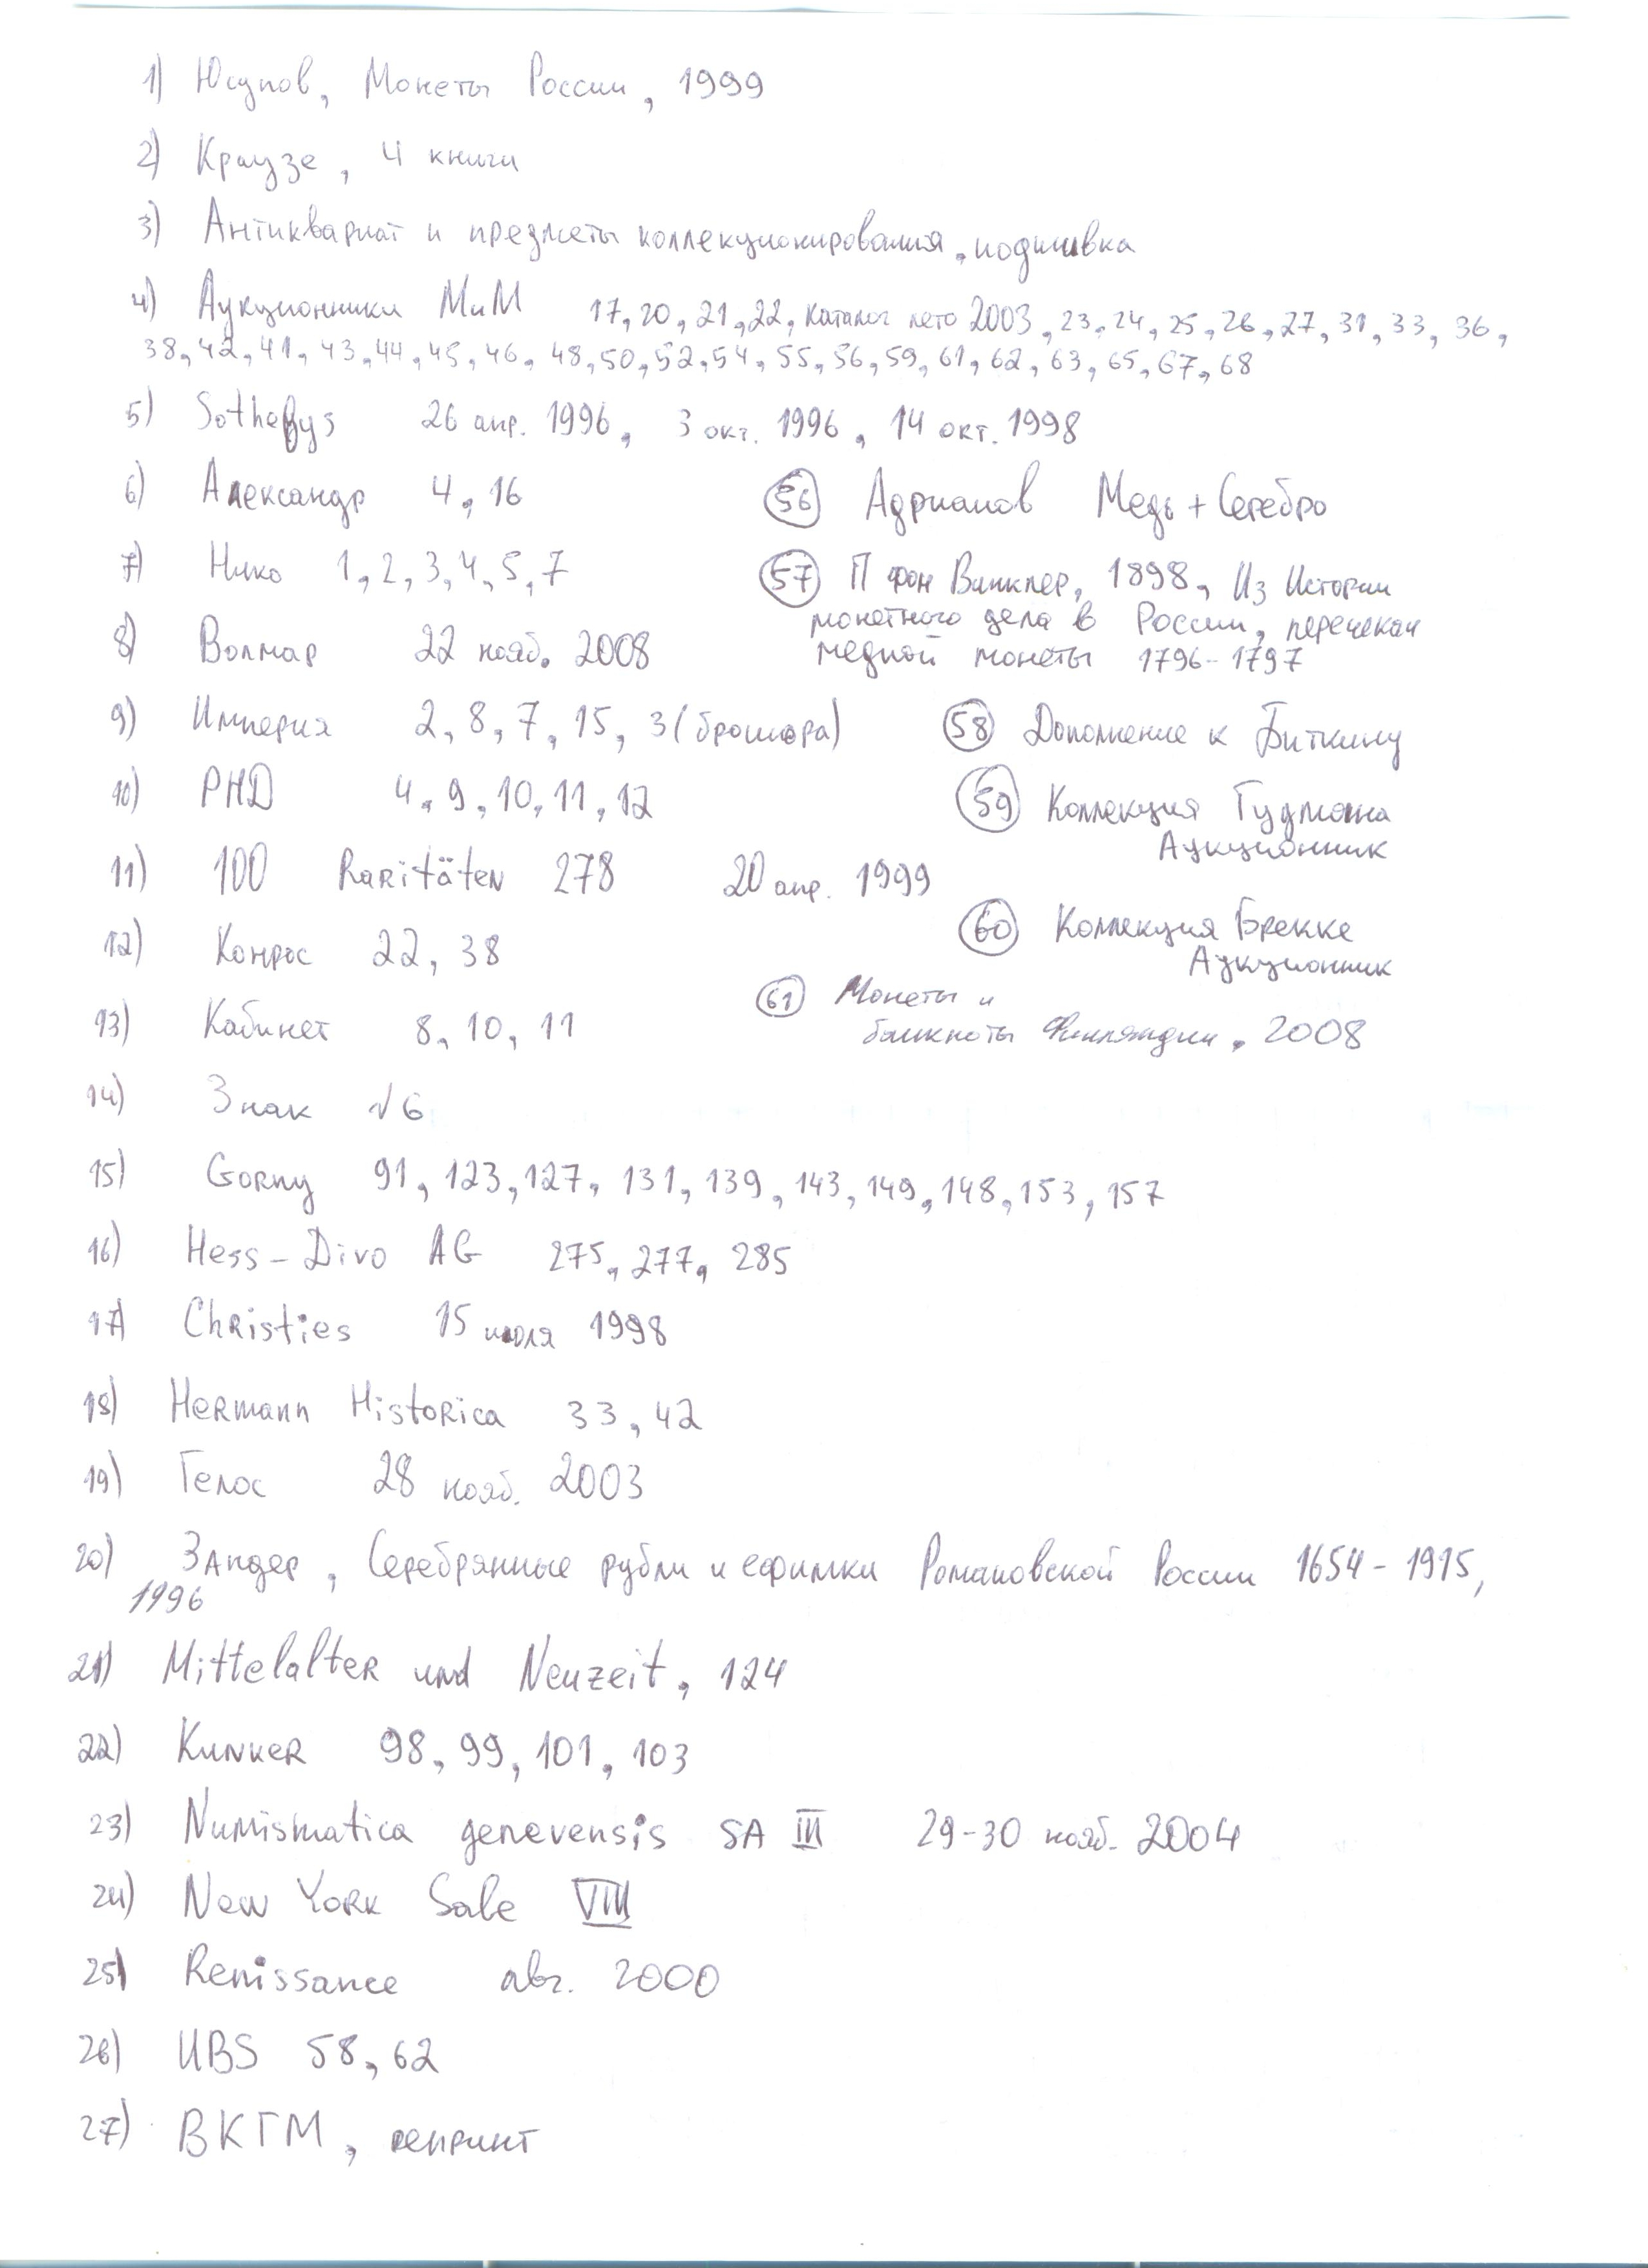 1) Юсупов, Монеты России, 1999
2) Краузе, 4 книги
3) Антиквариат и предметы коллекционирования, подшивка
4) Аукционники МиМ 17, 20, 21, 22, каталог лето 2003, 23, 24, 25, 26, 27, 31, 33, 36,
38, 42, 41, 43, 44, 45, 46, 48, 50, 52, 54, 55, 56, 59, 61, 62, 63, 65, 67, 68
5) Sothebys 26 апр. 1996, 3 окт. 1996, 14 окт. 1998
6) Александр 4, 16
7) Нико 1, 2, 3, 4, 5, 7
8) Волмар 22 нояб. 2008
9) Империя 2, 8, 7, 15, 3 (брошюра)
10) РНД 4, 9, 10, 11, 12
11) 100 Raritäten 278 20 апр. 1999
12) Конрос 22, 38
13) Кабинет 8, 10, 11
56 Адрианов Медь + Серебро
57 П фон Винклер, 1898, Из Истории
монетного дела в России, перечекан
медной монеты 1796-1797
58 Дополнение к Биткину
59 Коллекция Гудмана
Аукционник
60 Коллекция Брекке
Аукционник
61 Монеты и
банкноты Финляндии, 2008
14) Знак √6
15) Gorny 91, 123, 127, 131, 139, 143, 149, 148, 153, 157
16) Hess-Divo AG 275, 277, 285
17) Christies 15 июля 1998
18) Hermann Historica 33, 42
19) Гелос 28 нояб. 2003
20) Зандер, Серебрянные рубли и ефимки Романовской России 1654-1915,
1996
21) Mittelalter und Neuzeit, 124
22) Kunker 98, 99, 101, 103
23) Numismatica genevensis SA III 29-30 нояб. 2004
24) New York Sale VIII
25) Renissance авг. 2000
26) UBS 58, 62
27) ВКГМ, репринт